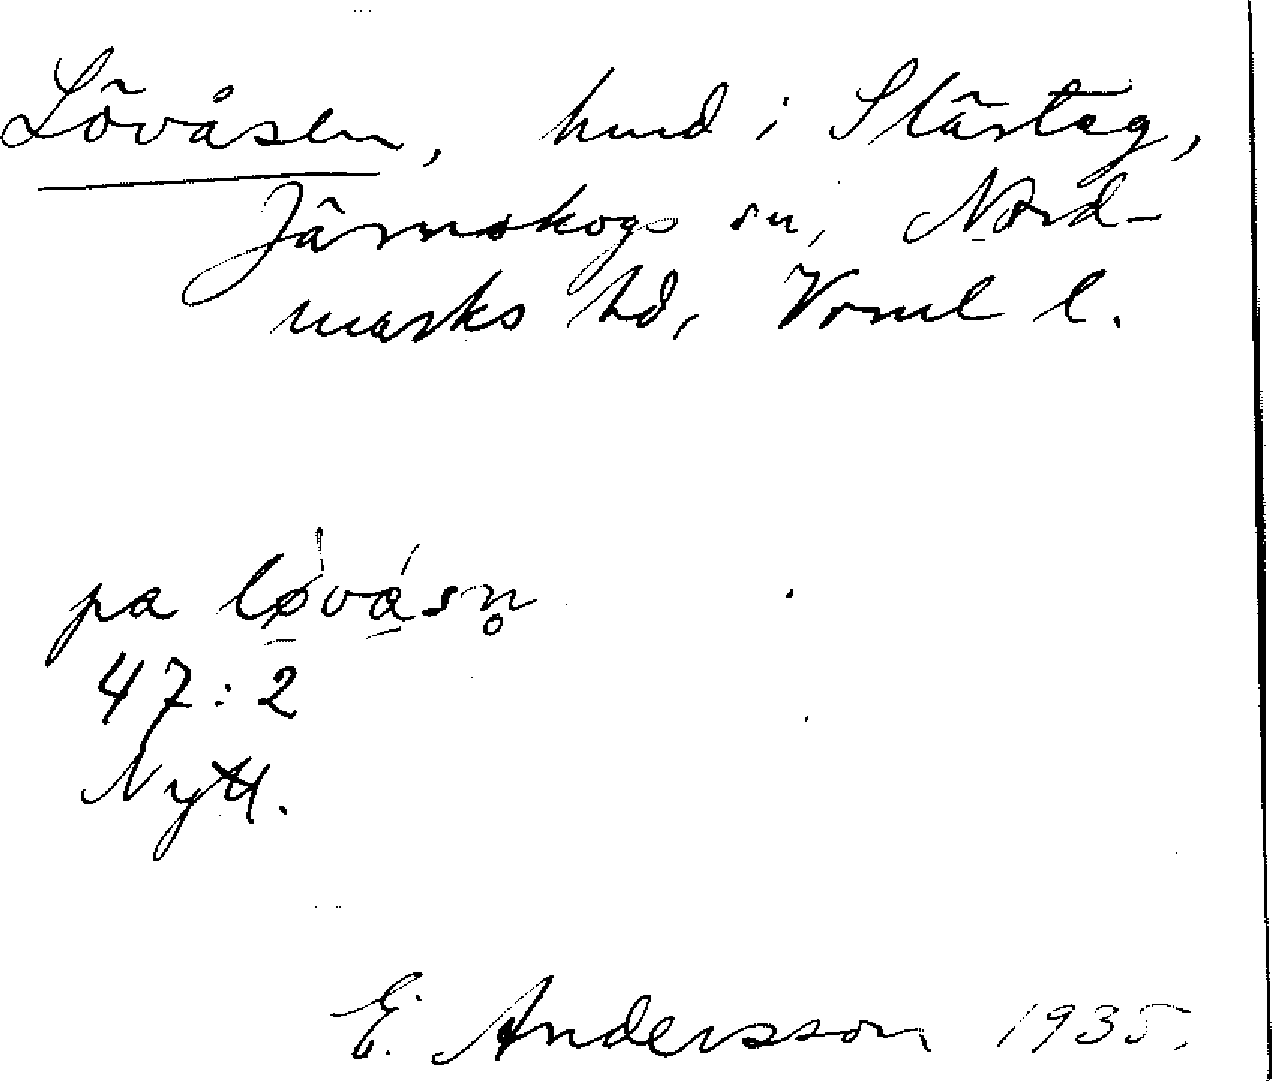 Lövåsen, hmd i Slärteg,
Järnskogs sn, Nord-
marks hd, Vrml l.
pa lø̀vásn̥
47:2
Nytt.
E. Andersson 1935.